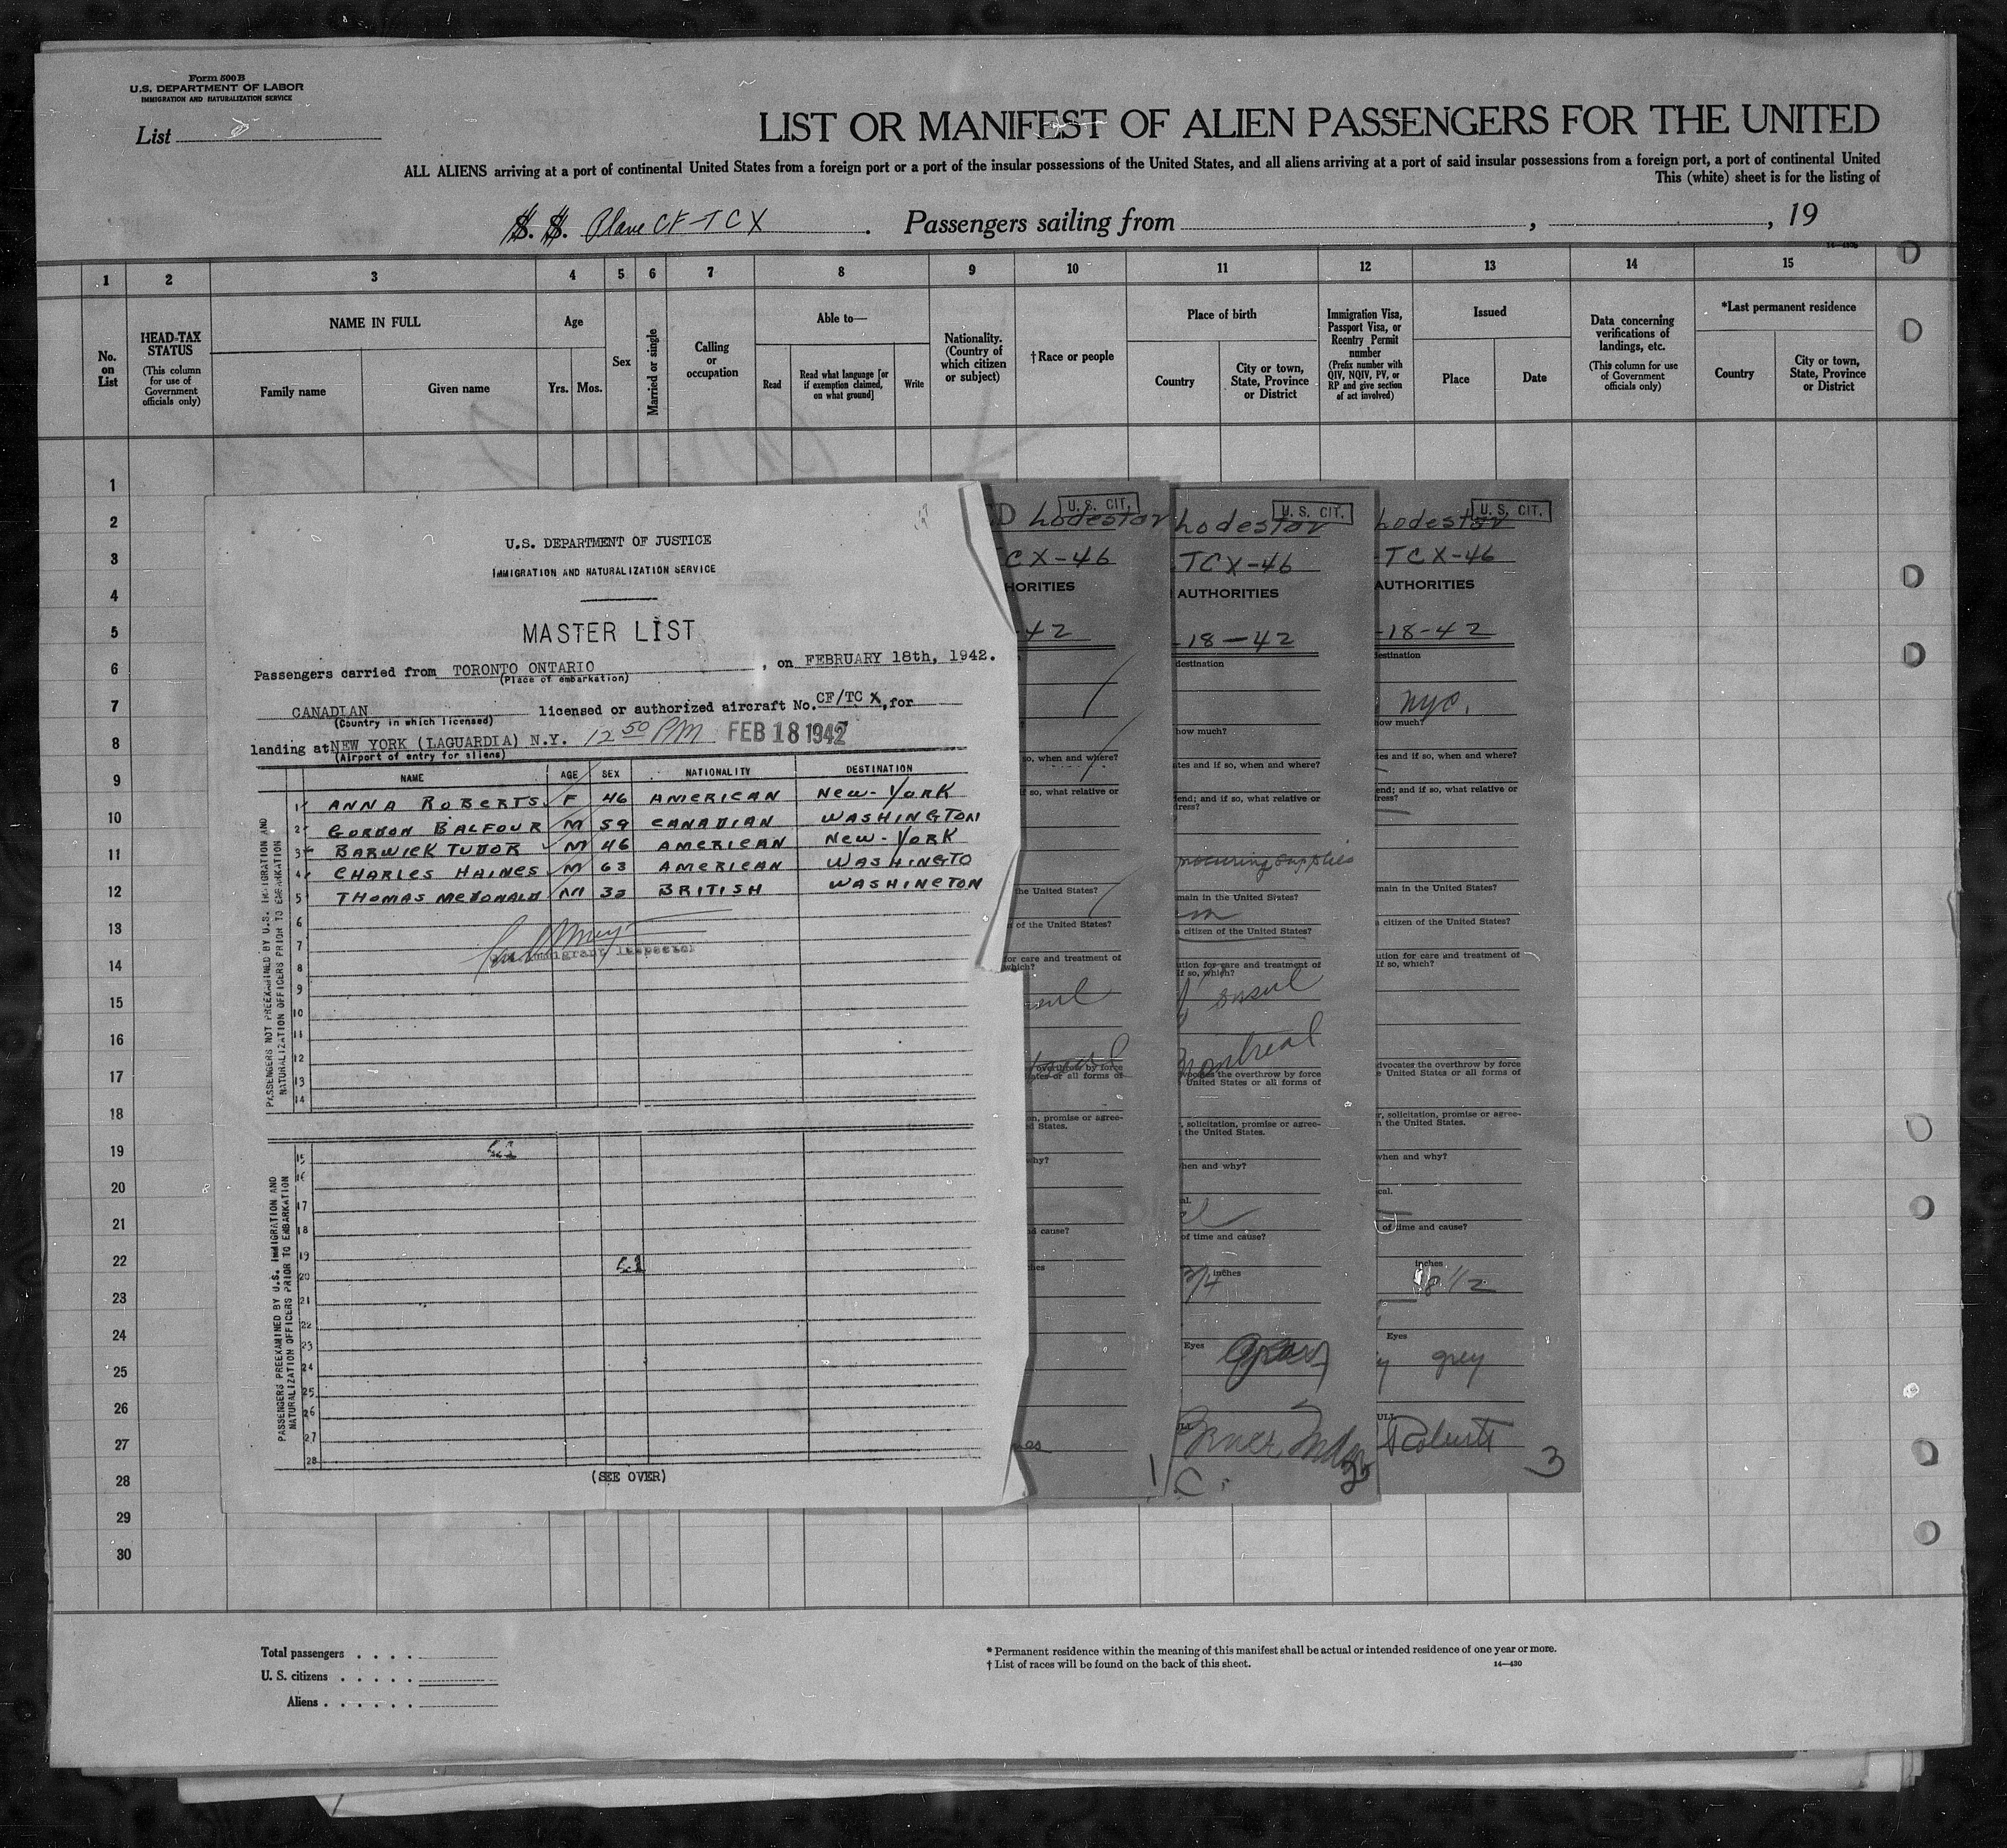 Form 500B
U.S. DEPARTMENT OF LABOR
IMMIGRATION AND NATURALIZATION SERVICE
List
LIST OR MANIFEST OF ALIEN PASSENGERS FOR THE UNITED
ALL ALIENS arriving at a port of continental United States from a foreign port or a port of the insular possessions of the United States, and all aliens arriving at a port of said insular possessions from a foreign port, a port of continental United
This (white) sheet is for the listing of
S. S. Plane CF-TCX . Passengers sailing from , , 19
1 2 3 4 5 6 7 8 9 10 11 12 13 14 15
No. on List
HEAD-TAX STATUS
(This column for use of Government officials only)
NAME IN FULL
Family name
Given name
Age
Yrs. Mos.
Sex
Married or single
Calling or occupation
Able to—
Read
Read what language [or if exemption claimed, on what ground]
Write
Nationality. (Country of which citizen or subject)
†Race or people
Place of birth
Country
City or town, State, Province or District
Immigration Visa, Passport Visa, or Reentry Permit number
(Prefix number with QIV, NQIV, PV, or RP and give section of act involved)
Issued
Place
Date
Data concerning verifications of landings, etc.
(This column for use of Government officials only)
*Last permanent residence
Country
City or town, State, Province or District
1
2
3
4
5
6
7
8
9
10
11
12
13
14
15
16
17
18
19
20
21
22
23
24
25
26
27
28
29
30
U.S. DEPARTMENT OF JUSTICE
IMMIGRATION AND NATURALIZATION SERVICE
MASTER LIST
Passengers carried from TORONTO ONTARIO , on FEBRUARY 18th, 1942.
(Place of embarkation)
CANADIAN licensed or authorized aircraft No. CF/TC X, for
(Country in which licensed)
landing at NEW YORK (LAGUARDIA) N.Y. 12 50 PM FEB 18 1942
(Airport of entry for aliens)
NAME AGE SEX NATIONALITY DESTINATION
1 ANNA ROBERTS F 46 AMERICAN NEW-YORK
2 GORDON BALFOUR M 59 CANADIAN WASHINGTON
3 BARWICK TUDOR M 46 AMERICAN NEW-YORK
4 CHARLES HAINES M 63 AMERICAN WASHINGTO
5 THOMAS McDONALD M 32 BRITISH WASHINGTON
6
7
8
9
10
11
12
13
14
Immigrant Inspector
PASSENGERS NOT PREEXAMINED BY U.S. IMMIGRATION AND NATURALIZATION OFFICERS PRIOR TO EMBARKATION
15
16
17
18
19
20
21
22
23
24
25
26
27
28
PASSENGERS PREEXAMINED BY U.S. IMMIGRATION AND NATURALIZATION OFFICERS PRIOR TO EMBARKATION
(SEE OVER)
U. S. CIT.
Lodestar
CX-46
HORITIES
42
so, when and where?
if so, what relative or
the United States?
of the United States?
for care and treatment of
which?
overthrow by force
ates or all forms of
n, promise or agree-
d States.
why?
d cause?
hes
1
U. S. CIT.
Lodestar
TCX-46
AUTHORITIES
-18-42
destination
how much?
tes and if so, when and where?
end; and if so, what relative or
dress?
procuring supplies
main in the United States?
a citizen of the United States?
ution for care and treatment of
if so, which?
Montreal
vocates the overthrow by force
United States or all forms of
, solicitation, promise or agree-
the United States.
hen and why?
al.
of time and cause?
3/4 inches
Eyes
C.
U. S. CIT.
Lodestar
-TCX-46
AUTHORITIES
-18-42
destination
nyc.
how much?
tes and if so, when and where?
end; and if so, what relative or
dress?
main in the United States?
a citizen of the United States?
ution for care and treatment of
If so, which?
dvocates the overthrow by force
e United States or all forms of
r, solicitation, promise or agree-
n the United States.
when and why?
cal.
of time and cause?
inches
8 1/2
Eyes
grey
ULL
Roberts
3
Total passengers
U. S. citizens
Aliens
* Permanent residence within the meaning of this manifest shall be actual or intended residence of one year or more.
† List of races will be found on the back of this sheet.
14—430